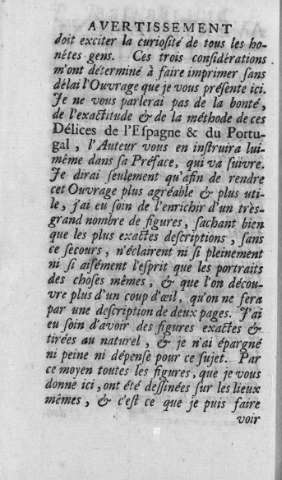 AVERTISSEMENT
doit exciter la curiosité de tous les ho-
nêtes gens. Ces trois considérations
m'ont déterminé à faire imprimer sans
délai l'Ouvrage que je vous présente ici.
Je ne vous parlerai pas de la bonté,
de l'exactitude & de la méthode de ces
Délices de l'Espagne & du Portu-
gal, l'Auteur vous en instruira lui-
même dans sa Préface, qui va suivre.
Je dirai seulement qu'afin de rendre
cet Ouvrage plus agréable & plus uti-
le, j'ai eu soin de l'enrichir d'un très-
grand nombre de figures, sachant bien
que les plus exactes descriptions, sans
ce secours, n'éclairent ni si pleinement
ni si aisément l'esprit que les portraits
des choses mêmes, & que l'on décou-
vre plus d'un coup d'œil, qu'on ne fera
par une description de deux pages. J'ai
eu soin d'avoir des figures exactes &
tirées au naturel, & je n'ai épargné
ni peine ni dépense pour ce sujet. Par
ce moyen toutes les figures, que je vous
donne ici, ont été dessinées sur les lieux
mêmes, & c'est ce que je puis faire
voir